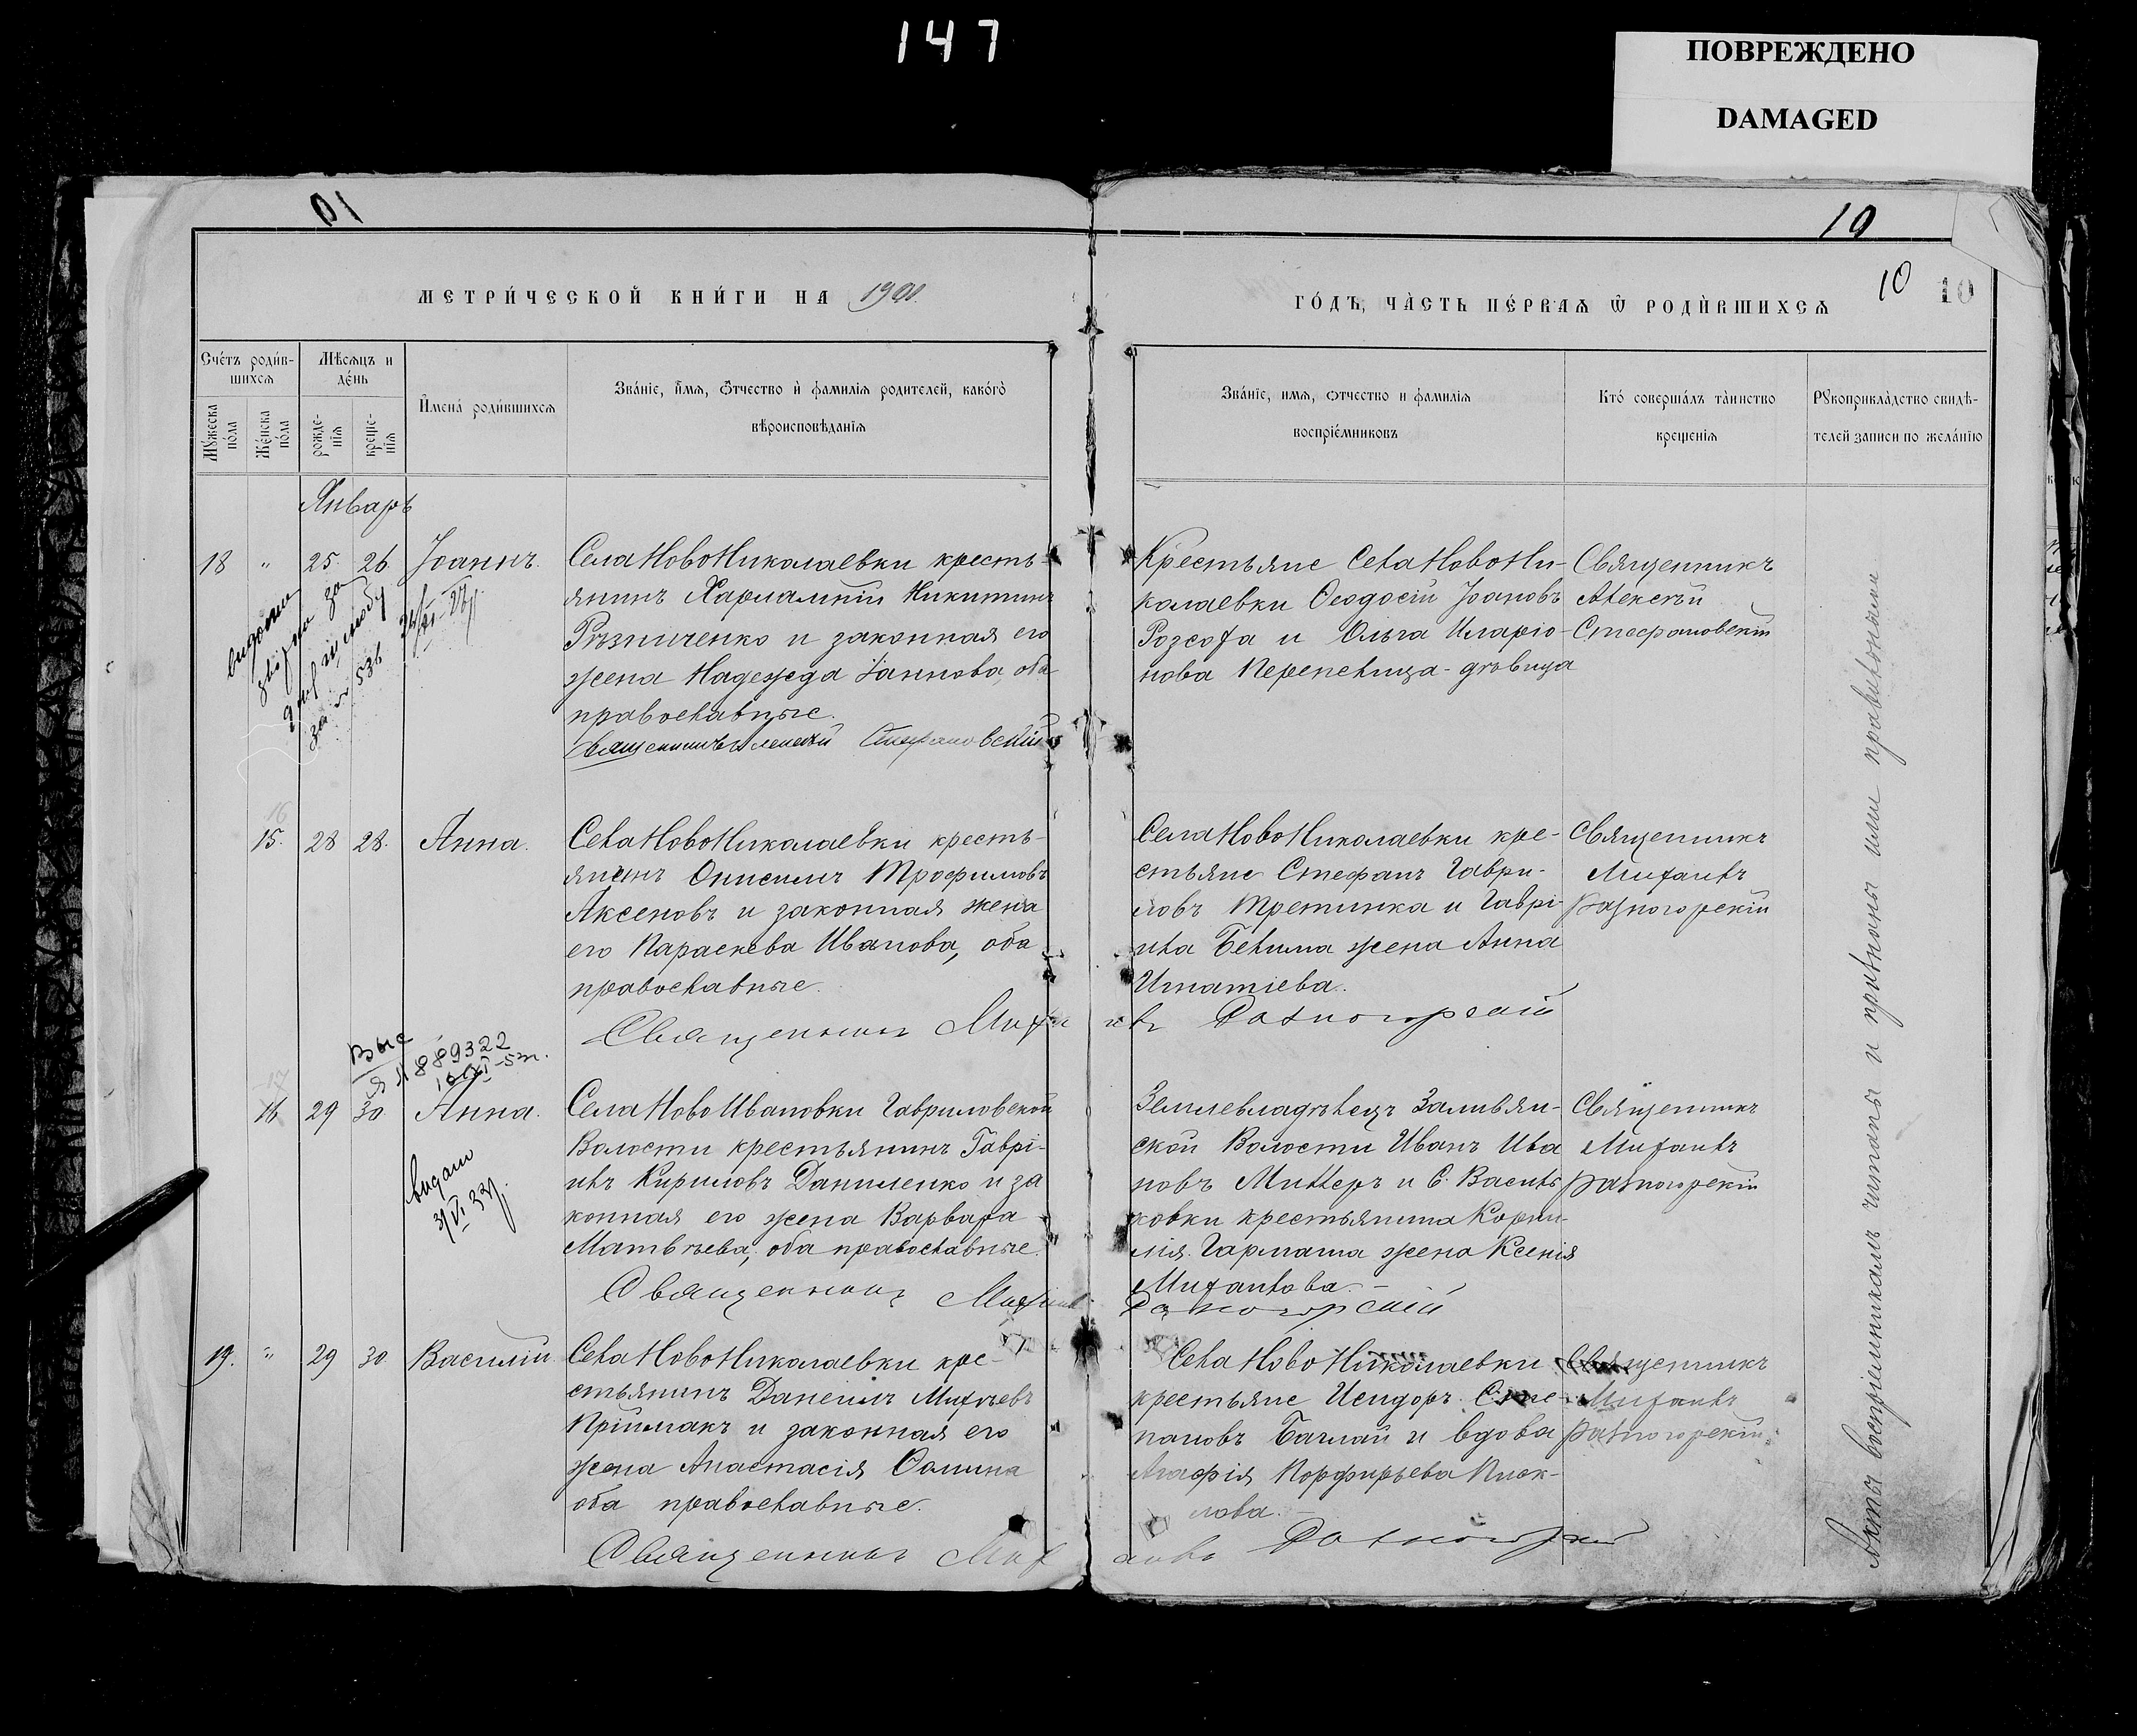 147
ПОВРЕЖДЕНО
DAMAGED
10
10
10
10
МЕТРИ́ЧЕСКОЙ КНИ́ГИ НА
ГО́ДЪ, ЧА̀СТЬ ПЕ́РВАЯ Ѿ РОДЍВШИХСЯ
Сче́тъ роди́в-
шихсѧ
Мѣ́сѧцъ и
де́нь
Мꙋ́жеска
по́ла
Же́нска
по́ла
рожде-
нїѧ
креще-
нїѧ
И҆мена́ роди́вшихсѧ
Зва́нїе, и҆́мѧ, ѻ҆́тчество и҆ фамилїѧ родителей, како́гѡ
вѣроисповѣ́данїѧ
Зва́нїе, имѧ, ѻтчество и фамилїѧ
воспрїе́мниковъ
Кто́ соверша́лъ та̀инство
крещенїѧ
Рꙋкоприкла̀дство свидѣ̀-
телей записи по жела́нїю
Январь
18 " 25. 26. Іоаннъ.
Села НовоНиколаевки кресть-
янинъ Харлампій Никитинъ
Рѣзниченко и законная его
жена Надежда Іаннова, оба
православные.
Священникъ Алексѣй Стефановскій
Крестьяне Села НовоНи-
колаевки Ѳеодосій Іоановъ
Розсоха и Ольга Иларіо-
нова Перепелица-дѣвица
Священникъ
Алексѣй
Стефановскій
16
15. 28 28. Анна.
Села НовоНиколаевки кресть-
янинъ Онисимъ Трофимовъ
Аксеновъ и законная жена
его Параскева Иванова, оба
православные.
Священникъ Михаилъ Разногорскій
Села НовоНиколаевки кре-
стьяне Стефанъ Гаври-
ловъ Третинка и Гаврі-
ила Бекима жена Анна
Игнатіева.
Священникъ
Михаилъ
Разногорскій
17
16 29 30 Анна.
Села НовоИвановки Гавриловской
Волости крестьянинъ Гаврі-
илъ Кириловъ Даниленко и за
конная его жена Варвара
Матвѣева, оба православные.
Священникъ Михаилъ Разногорскій
Землевладѣлецъ Заливян-
ской Волости Иванъ Ива
новъ Миллеръ и С. Василь
ковки крестьянина Корни-
лія Гармаша жена Ксенія
Михаилова.-
Священникъ
Михаилъ
Разногорскій
видано
19. " 29 30 Василій
Села НовоНиколаевки кре-
стьянинъ Даніилъ Михѣевъ
Приймакъ и законная его
жена Анастасія Ѳомина
оба православные.
Священникъ Михаилъ Разногорскій
Села НовоНиколаевки
крестьяне Исидоръ Сте-
пановъ Бачлай и вдова
Агафія Порфирьева Писк-
лова.
Священникъ
Михаилъ
Разногорскій
Акты воспріемникамъ читаны и признаны ими правильными